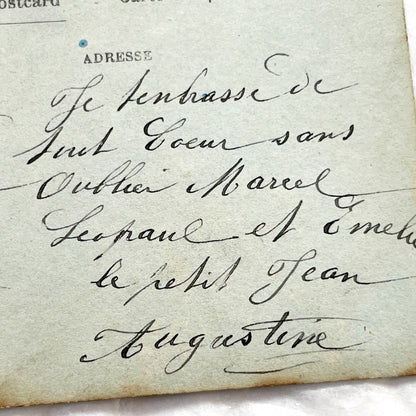 ostcard
ADRESSE
Je tenbrasse de
tout Coeur sans
Oublier Marcel
Leopaul et Emelie
le petit Jean
Augustine